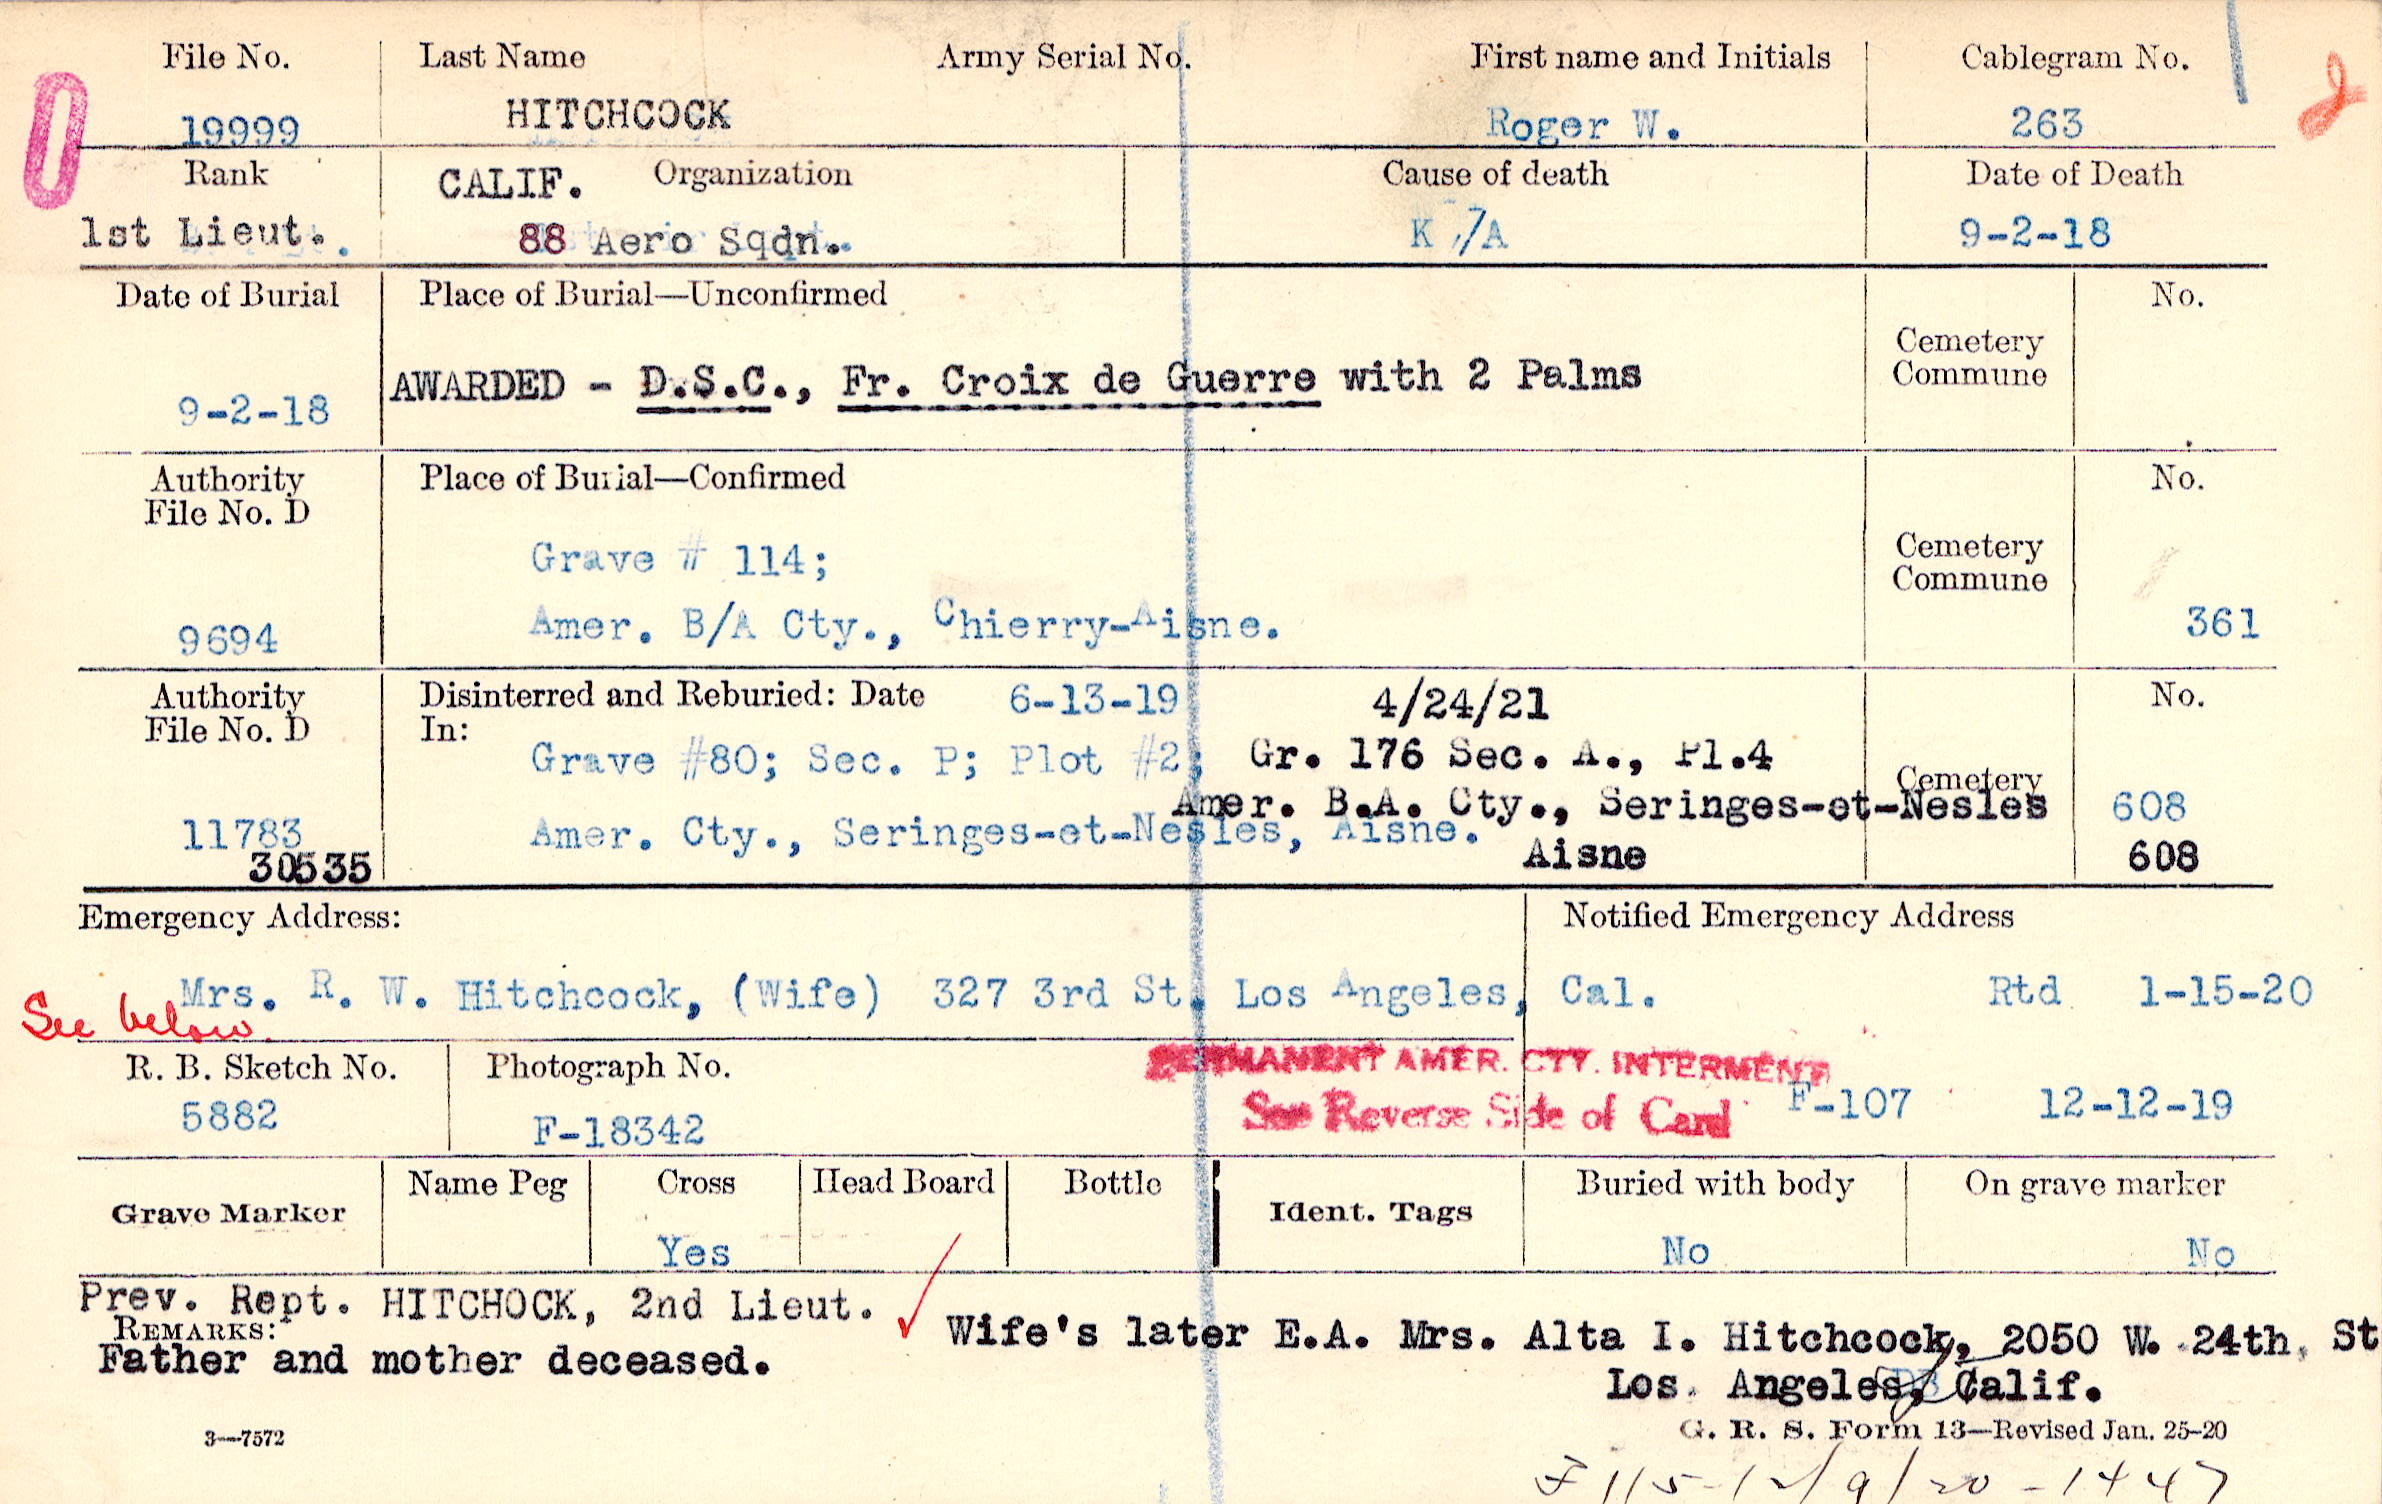 File No. Last Name Army Serial No. First name and Initials Cablegram No.
19999 HITCHCOCK Roger W. 263
Rank CALIF. Organization Cause of death Date of Death
1st Lieut. 88 Aero Sqdn. K /A 9-2-18
Date of Burial Place of Burial—Unconfirmed No.
Cemetery
Commune
9-2-18 AWARDED - D.S.C., Fr. Croix de Guerre with 2 Palms
Authority Place of Burial—Confirmed No.
File No. D
Grave # 114;
Cemetery
Commune
9694 Amer. B/A Cty., Chierry-Aisne. 361
Authority Disinterred and Reburied: Date 6-13-19 4/24/21 No.
File No. D In:
Grave #80; Sec. P; Plot #2; Gr. 176 Sec. A., Pl.4
Cemetery
Amer. B.A. Cty., Seringes-et-Nesles 608
11783 Amer. Cty., Seringes-et-Nesles, Aisne.
30535 Aisne 608
Emergency Address: Notified Emergency Address
Mrs. R. W. Hitchcock, (Wife) 327 3rd St. Los Angeles, Cal. Rtd 1-15-20
See below
R. B. Sketch No. Photograph No. PERMANENT AMER. CTY. INTERMENT
5882 F-18342 See Reverse Side of Card F-107 12-12-19
Grave Marker Name Peg Cross Head Board Bottle Ident. Tags Buried with body On grave marker
Yes No No
Prev. Rept. HITCHOCK, 2nd Lieut.
REMARKS: Wife's later E.A. Mrs. Alta I. Hitchcock, 2050 W. 24th, St
Father and mother deceased. Los Angeles, Calif.
3—7572 G. R. S. Form 13—Revised Jan. 25-20